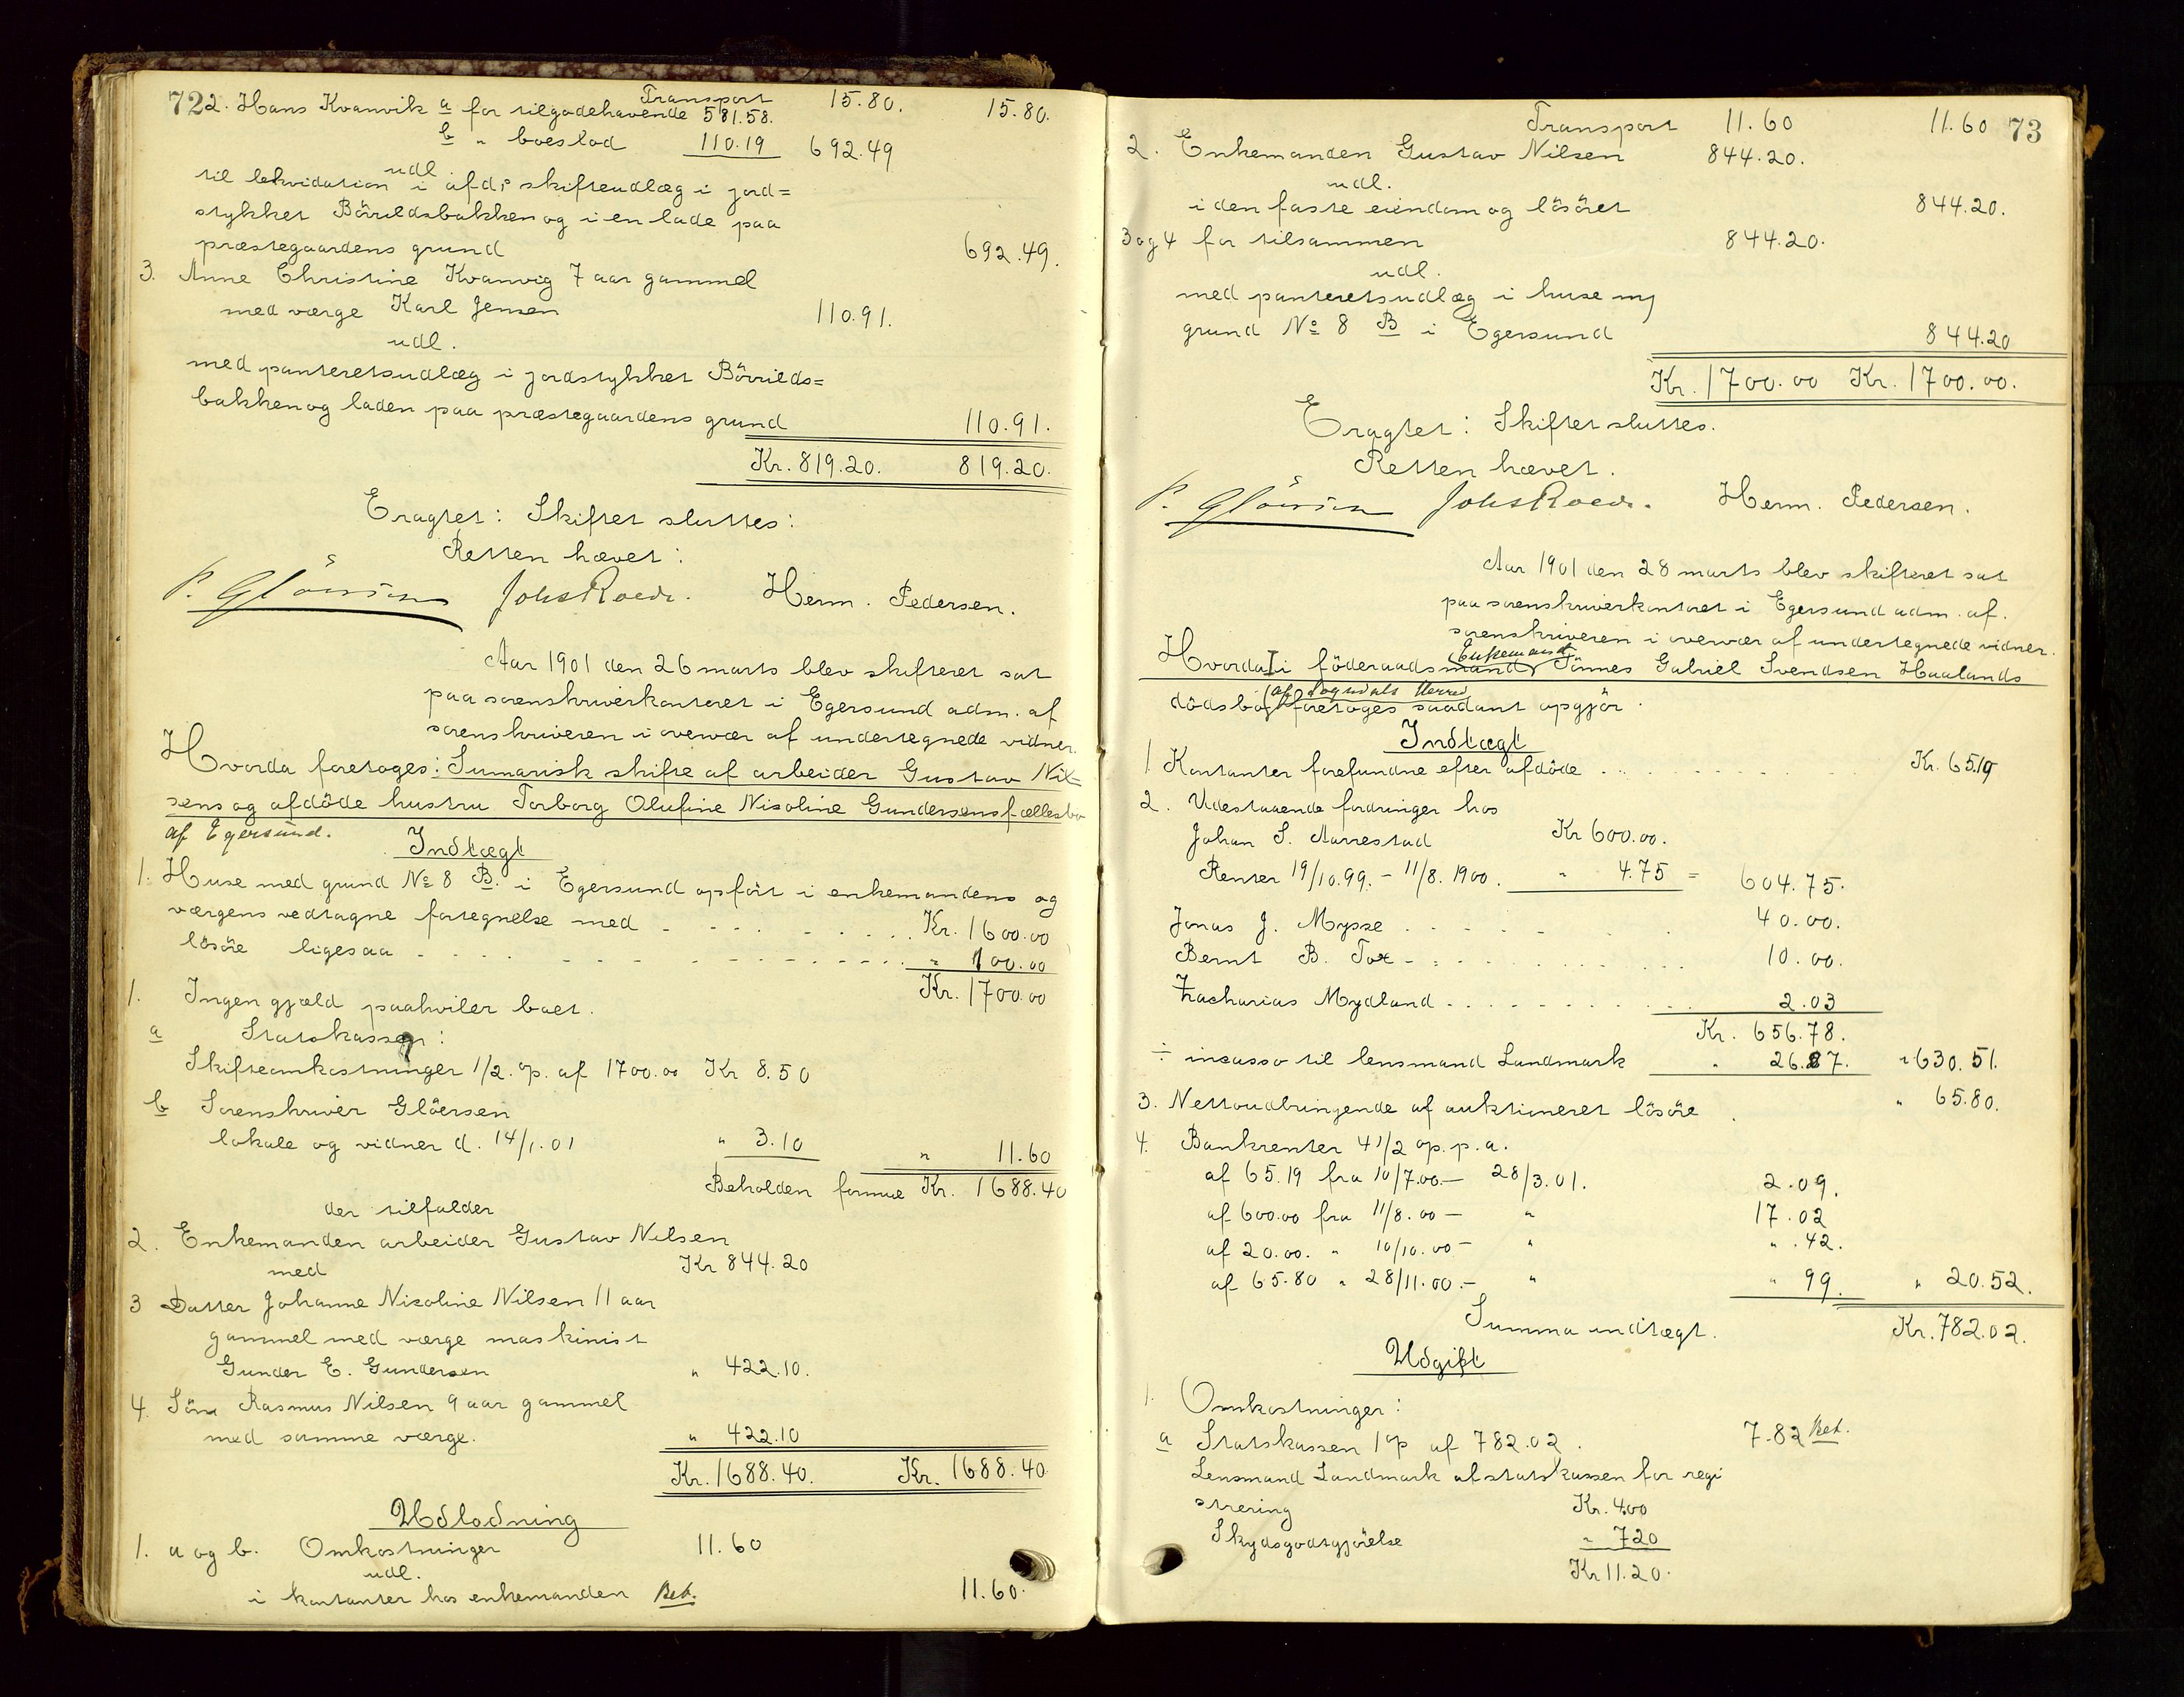 72
Transport 15.80. 15.80.
2. Hans Kvanvik a for tilgodehavende 581.58.
b " boeslod 110.19 692.49
udl.
til lekvidation i afd.s skifteudlæg i jord=
stykket Bövrildsbakken og i en lade paa
præstegaardens grund 692.49.
3. Anne Christine Kvanvig 7 aar gammel
med værge Karl Jensen 110.91.
udl.
med panteretsudlæg i jordstykket Bövrilds=
bakken og laden paa præstegaardens grund 110.91.
Kr. 819.20. 819.20.
Eragtet: Skiftet sluttes:
Retten hævet:
P. Glöersen Johs Roedr. Herm. Pedersen.
Aar 1901 den 26 marts blev skifteret sat
paa sorenskriverkontoret i Egersund adm. af
sorenskriveren i overvær af undertegnede vidner.
Hvorda foretoges: Sumarisk skifte af arbeider Gustav Nil=
sens og afdöde hustru Torborg Olufine Nicoline Gundersens fællesbo
af Egersund.
Indtægt
1. Huse med grund No 8 B. i Egersund opfört i enkemandens og
værgens vedtagne fortegnelse med Kr. 1600.00
lösöre ligesaa " 100.00
Kr. 1700.00
1. Ingen gjæld paahviler boet.
a Statskassen:
Skifteomkostninger 1/2 op. af 1700.00 Kr 8.50
b Sorenskriver Glöersen
lokale og vidner d. 14/1.01 " 3.10 " 11.60
Beholden formue Kr. 1688.40
der tilfalder
2. Enkemanden arbeider Gustav Nilsen
med Kr 844.20
3 Datter Johanne Nicoline Nilsen 11 aar
gammel med værge maskinist
Gunder E. Gundersen " 422.10.
4. Sön Rasmus Nilsen 9 aar gammel
med samme værge. " 422.10
Kr. 1688.40. Kr. 1688.40
Udlodning
1. a og b. Omkostninger 11.60
udl.
i kontanter hos enkemanden Bet. 11.60.
73
Transport 11.60 11.60
2. Enkemanden Gustav Nilsen 844.20.
udl.
i den faste eiendom og lösöret 844.20.
3 og 4 for tilsammen 844.20.
udl.
med panteretsudlæg i huse m/
grund No 8 B i Egersund 844.20
Kr. 1700.00 Kr. 1700.00.
Eragtet: Skiftet sluttes.
Retten hævet.
P. Glöersen Johs Roedr. Herm. Pedersen.
Aar 1901 den 28 marts blev skifteret sat
paa sorenskriverkontoret i Egersund adm. af.
sorenskriveren i overvær af undertegnede vidner.
Enkemand
Hvorda I i föderaadsmand Tönnes Gabriel Svendsen Haalands
af Sogndals Herred
dödsbo foretoges saadant opgjör.
Indtægt
1 Kontanter forefundne efter afdöde Kr. 65.19
2. Udestaaende fordringer hos
Johan S. Aarrestad Kr 600.00.
Renter 19/10.99. - 11/8. 1900. " 4.75 = 604.75.
Jonas J. Mysse 40.00.
Bernt B. Tox 10.00.
Zacharias Mydland 2.03
Kr. 656.78.
÷ incasso til lensmand Landmark " 26.27. " 630.51.
3. Nettoudbringende af auktioneret lösöre " 65.80.
4. Bankrenter 4 1/2 op. p. a.
af 65.19 fra 10/7.00 - 28/3.01. 2.09.
af 600.00 fra 11/8.00 - " 17.02
af 20.00. " 10/10.00 - " " .42.
af 65.80 " 28/11.00. - " " 99. " 20.52.
Summa indtægt. Kr. 782.02.
Udgift
1. Omkostninger:
a Statskassen 1 op af 782.02. 7.82 Bet.
Lensmand Landmark af statskassen for regi
strering Kr. 4.00
Skydsgodtgjörelse " 7.20
Kr 11.20.